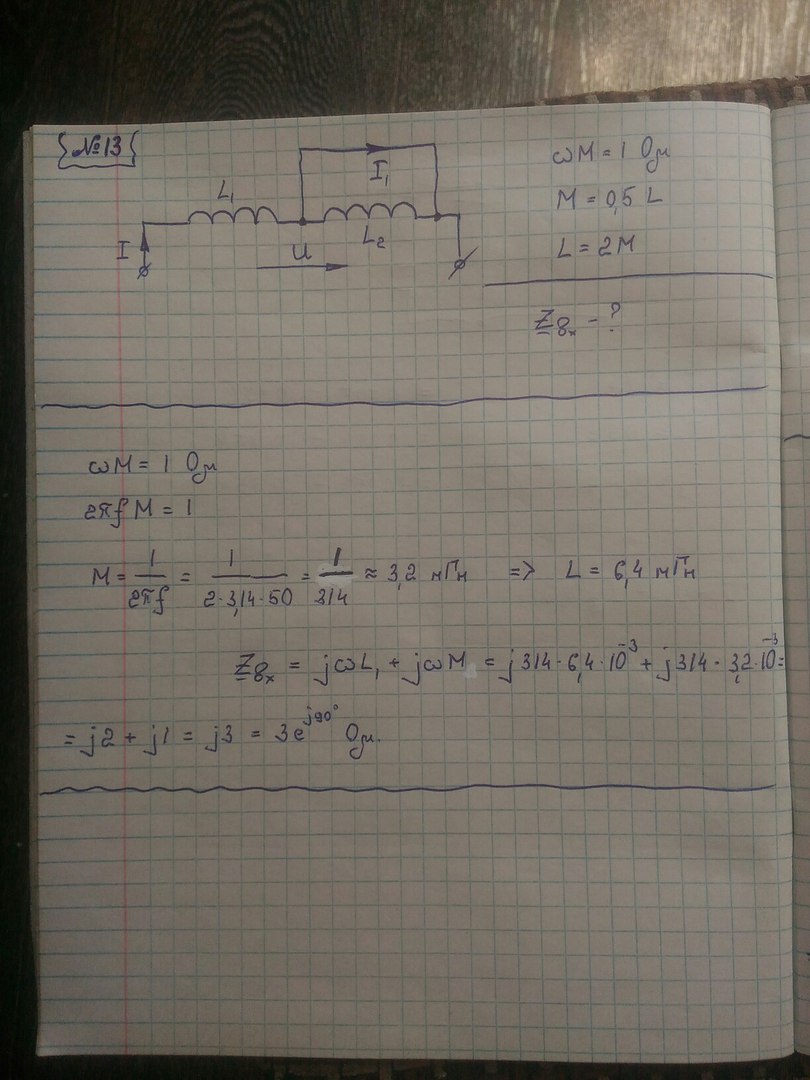 №13
L₁
I₁
L₂
I
U
ωM = 1 Ом
M = 0,5 L
L = 2M
Z вх - ?
ωM = 1 Ом
2πf M = 1
M = 1/2πf = 1/2·3,14·50 = 1/314 ≈ 3,2 мГн => L = 6,4 мГн
Z вх = jωL₁ + jωM = j314·6,4·10⁻³ + j314·3,2·10⁻³ =
= j2 + j1 = j3 = 3e^j90° Ом.